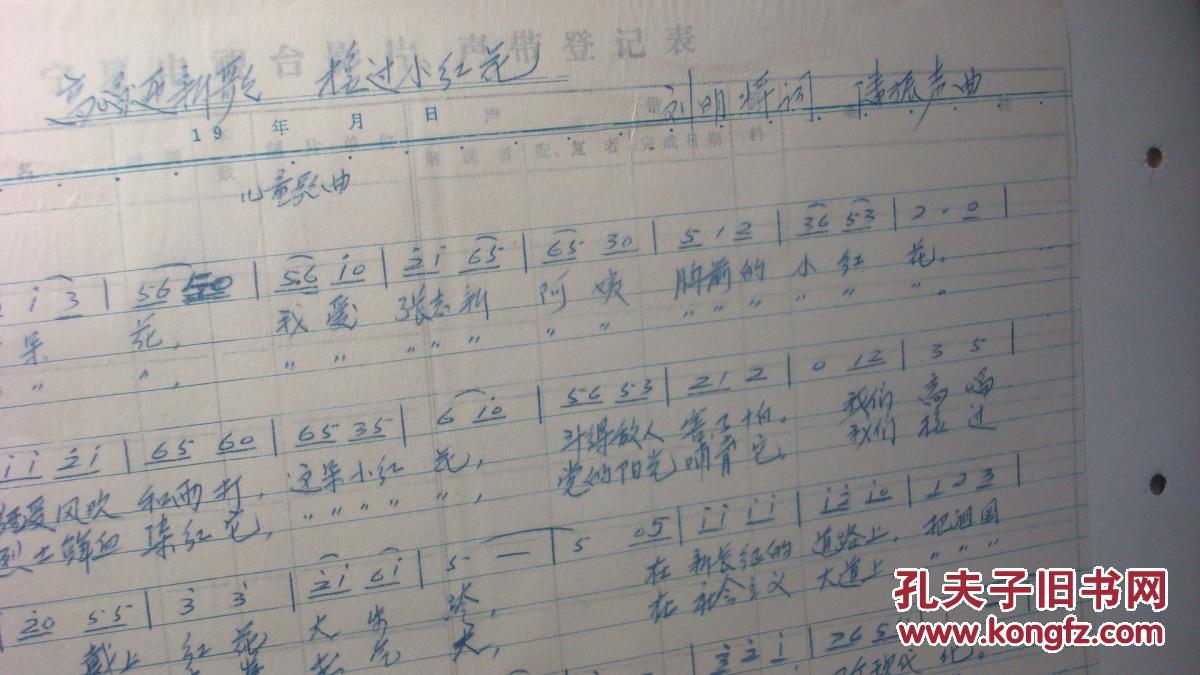 高唱迎新歌 接过小红花
刘明将词 陈振声曲
19 年 月 日
儿童歌曲
i 3 | 56 50 | 56 i0 | 2i 65 | 65 30 | 5 1 2 | 36 53 | 2 · 0 |
朵 花, 我爱 张志新 阿姨 胸前的 小红花。
" " " " " " " " " " " " " " "
ii 2i | 65 60 | 65 35 | 6 i0 | 56 53 | 21 2 | 0 12 | 3 5 |
经受风吹 和雨打, 这朵小红 花, 斗得敌人 害了怕。 我们 高唱
烈士鲜血 染红它, " " " " " 党的阳光 哺育它。 我们 接过
20 55 | 3 3 | 2i 6i | 5 — | 5 05 | ii ii | i2 i0 | 1 2 3
戴上 红花 大步 跨, 在 新长征的 道路上, 把祖国
大, 在 社会主义 大道上 " " "
3 2 i | 26 5
现代 化。
孔夫子旧书网
www.kongfz.com